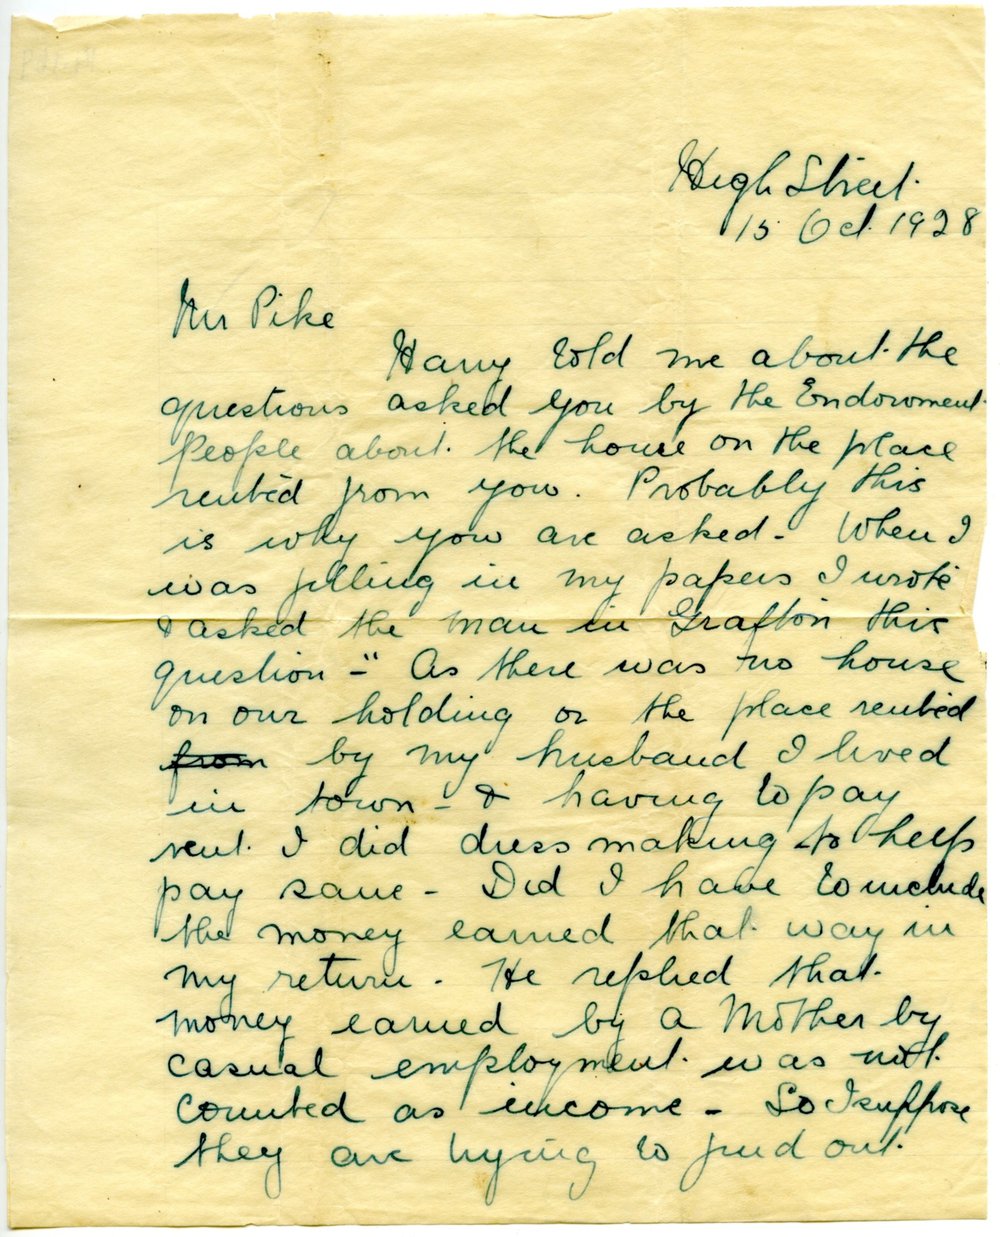 High Street.
15 Oct. 1928
Mr Pike
Harry told me about the
questions asked you by the Endowment
People about the house on the place
rented from you. Probably this
is why you are asked - When I
was filling in my papers I wrote
& asked the man in Grafton this
question - " As there was no house
on our holding or the place rented
from by my husband I lived
in town - & having to pay
rent I did dress making to help
pay same - Did I have to include
the money earned that way in
my return. He replied that
money earned by a Mother by
casual employment was not
counted as income - So I suppose
they are trying to find out.